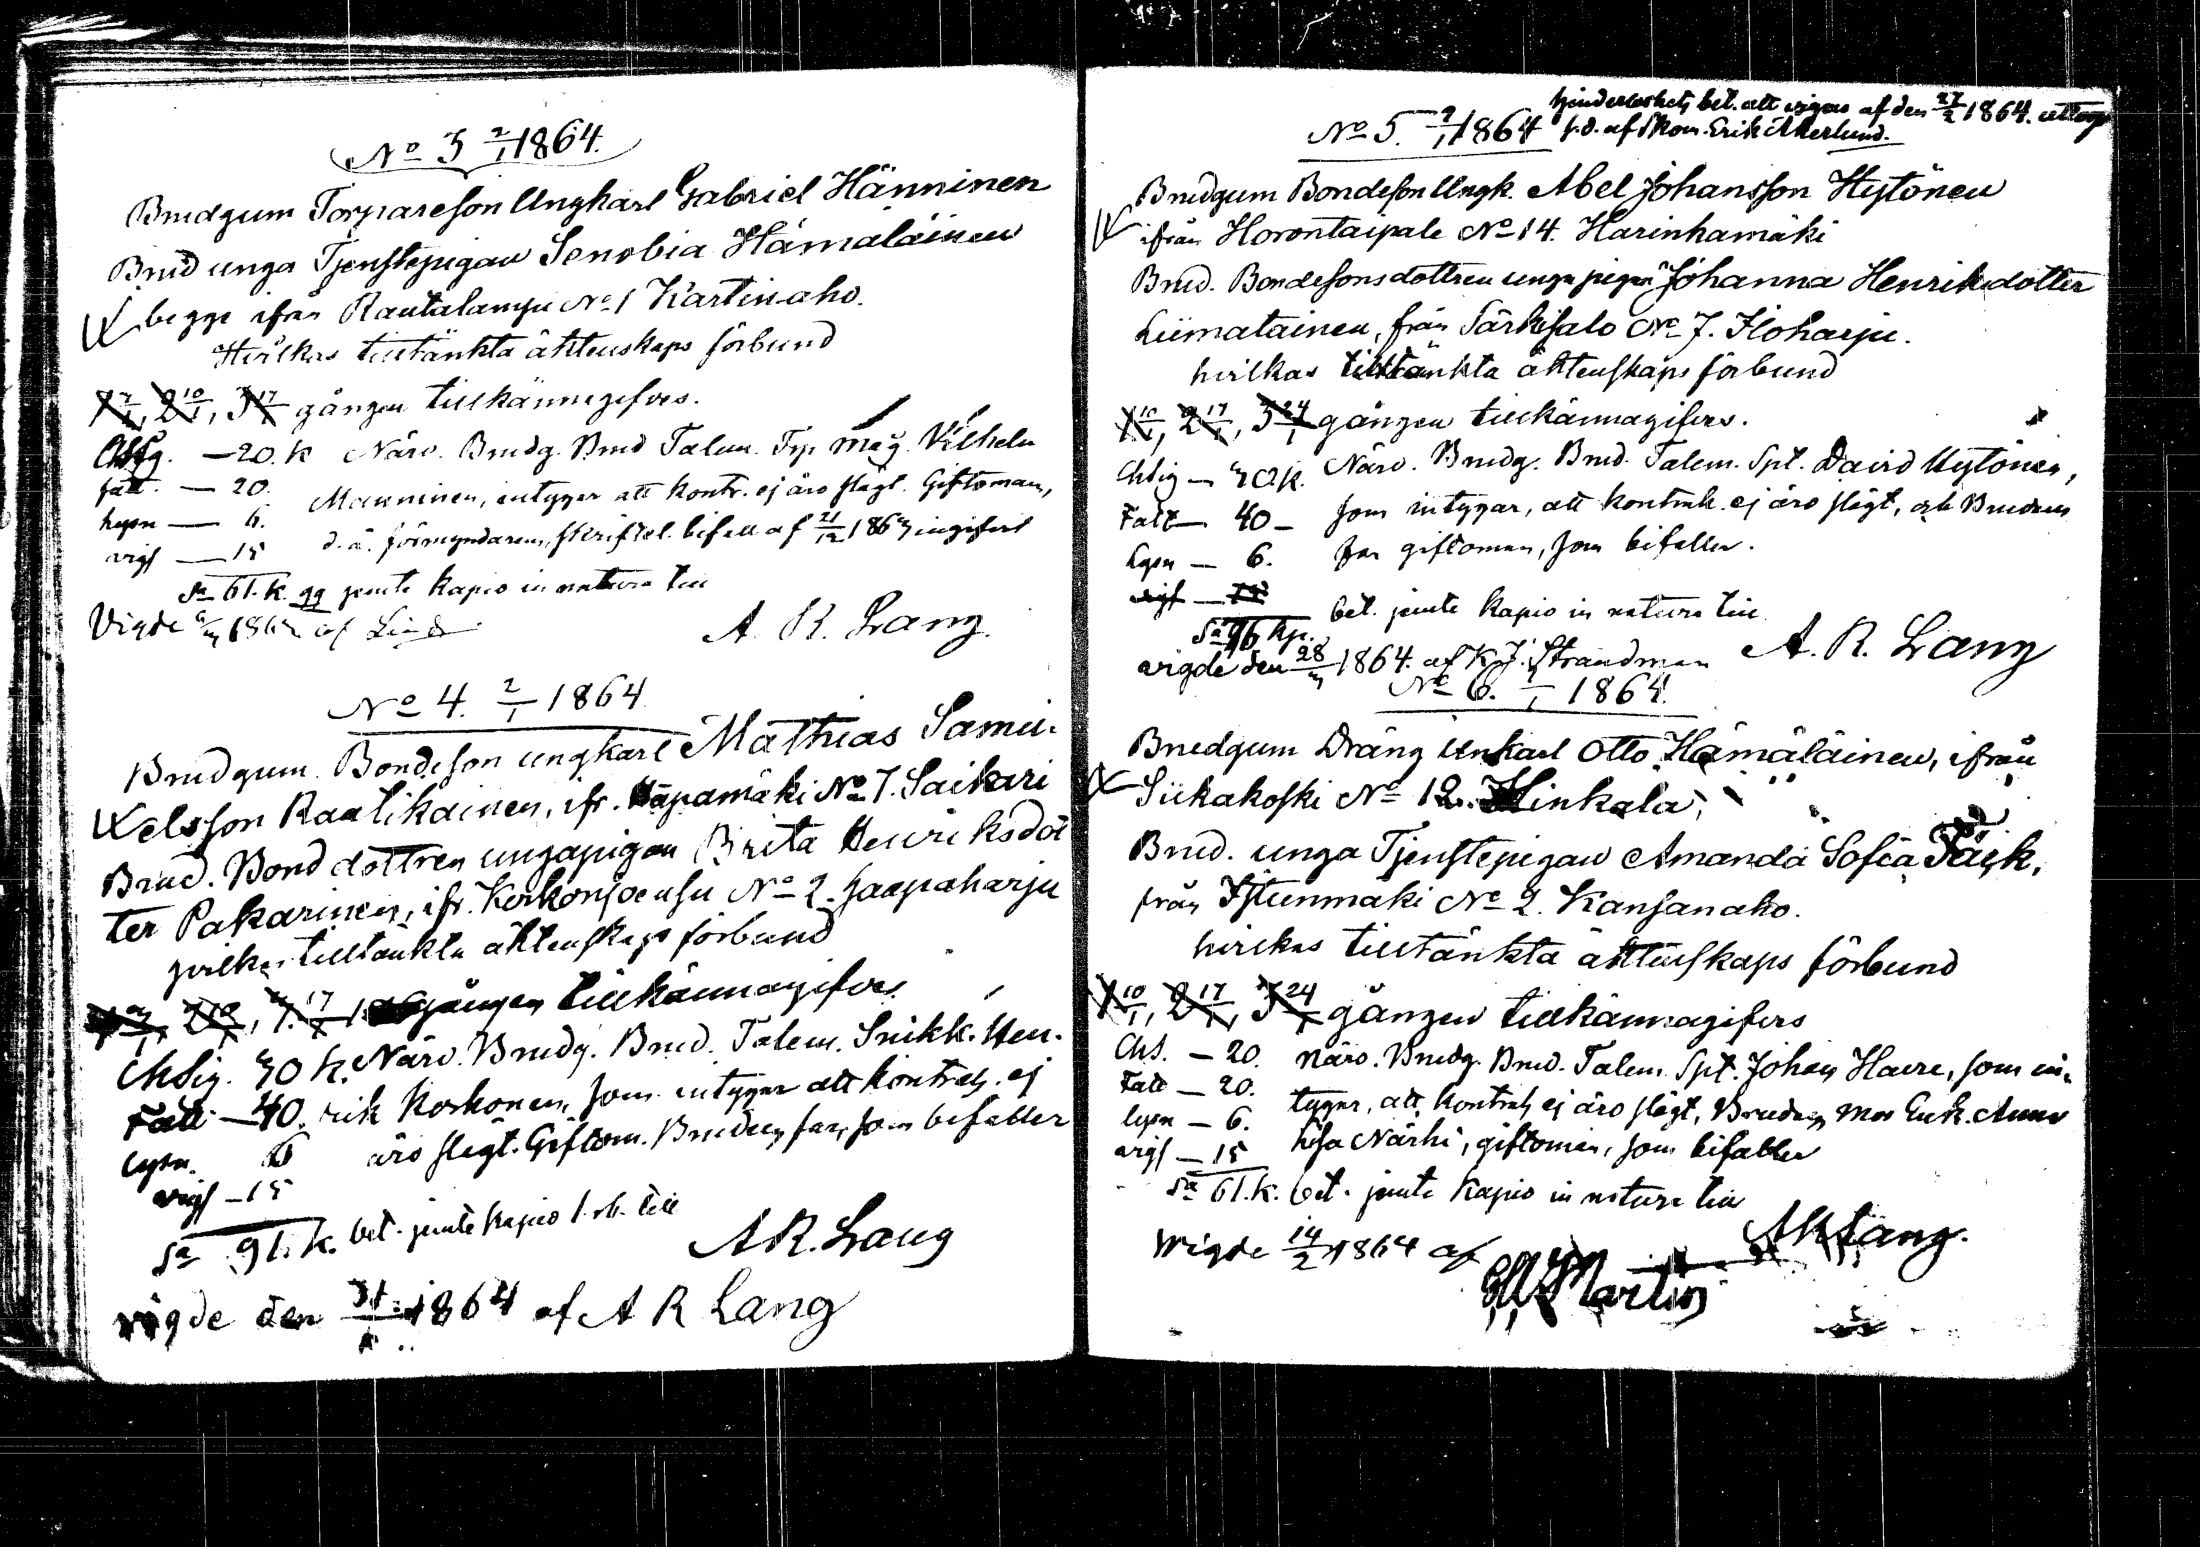 No 3 2/1 1864.
Brudgum Torpareson Ungkarl Gabriel Hänninen
Brud unga Tjenstepigan Senobia Hämäläinen
begge ifrån Rautalampi No 1 Kärtinaho.
Hvilkas tilltänkta äktenskaps förbund
1 7/1, 2 10/1, 3 17/1 gången tillkännagifves.
Chsig. — 20. k Närv. Brudg. Brud Talem. Mag. Vilhelm
fatt. — 20. Manninen, intygar att kontr. ej äro slägt. Giftoman,
lysn — 6. d. ä. förmyndarens, skriftel. bifall af 21/12 1863 ingifvet
vigs — 15
Sa 61. k. jemte kapio in natura till
Vigde 1864 af Lind
A. R. Lang.
No 4. 2/1 1864
Brudgum. Bondeson ungkarl Mathias Samu-
elsson Raatikainen, ifr. Häpamäki No 7. Saikari
Brud. Bond dottren ungapigan Brita Henriksdot
ter Pakarinen, ifr. Kerkonjoensu No 2. Haapaharju
hvilkas tilltänkta äktenskaps förbund
gången tillkännagifves
Chsig. 30 k. Närv. Brudg. Brud. Talem. Snikk. Hen-
Fatt — 40. rik Korhonen, som intygar att kontrah. ej
lysn. 6 äro slägt. Giftom. Brudens far, som bifaller
vigs — 15
Sa 91. k. bet. jemte kapio till
A R. Lang
vigde den 31/1 1864 af A R Lang
hinderlöshets bet. att vigas af den 27/2 1864.
No 5. 2/1 1864 af Erik Åkerlund.
Brudgum Bondeson Ungk. Abel Johansson Hytönen
ifrån Horontaipale No 14. Harinhamäki
Brud. Bondesonsdottren unga pigan Johanna Henriksdotter
Liimatainen, från Särkisalo No 7. Iloharju.
hvilkas tilltänkta äktenskaps förbund
1 10/1, 2 17/1, 3 24/1 gången tillkännagifves.
Chsig — 30 k. Närv. Brudg. Brud. Talem. Spt. David Hytönen,
Fatt — 40 — som intygar, att kontrah. ej äro slägt, och Brudens
lysn — 6. far giftoman, som bifaller.
vigs — 15
Sa 76 kp. bet. jemte kapio in natura till
A. R. Lang
vigde den 28/3 1864. af K J. Strandman
No 6. 1864.
Brudgum Dräng Unkarl Otto Hämäläinen, ifrån
Siikakoski No 12. Hinkala,
Brud. unga Tjenstepigan Amanda Sofia
från Istunmäki No 2. Kansanaho.
hvilkas tilltänkta äktenskaps förbund
1 10/1, 2 17/1, 3 24/1 gången tillkännagifves
Chs. — 20. Närv. Brudg. Brud. Talem. Spt. Johan som in-
Fatt — 20. tygar, att kontrah ej äro slägt, Brudens mor Enk. Anna
lysn — 6. Lisa Närhi, giftoman, som bifaller
vigs — 15
Sa 61. k. bet. jemte kapio in natura till
A R Lang.
Wigde 14/2 1864 af
Martin